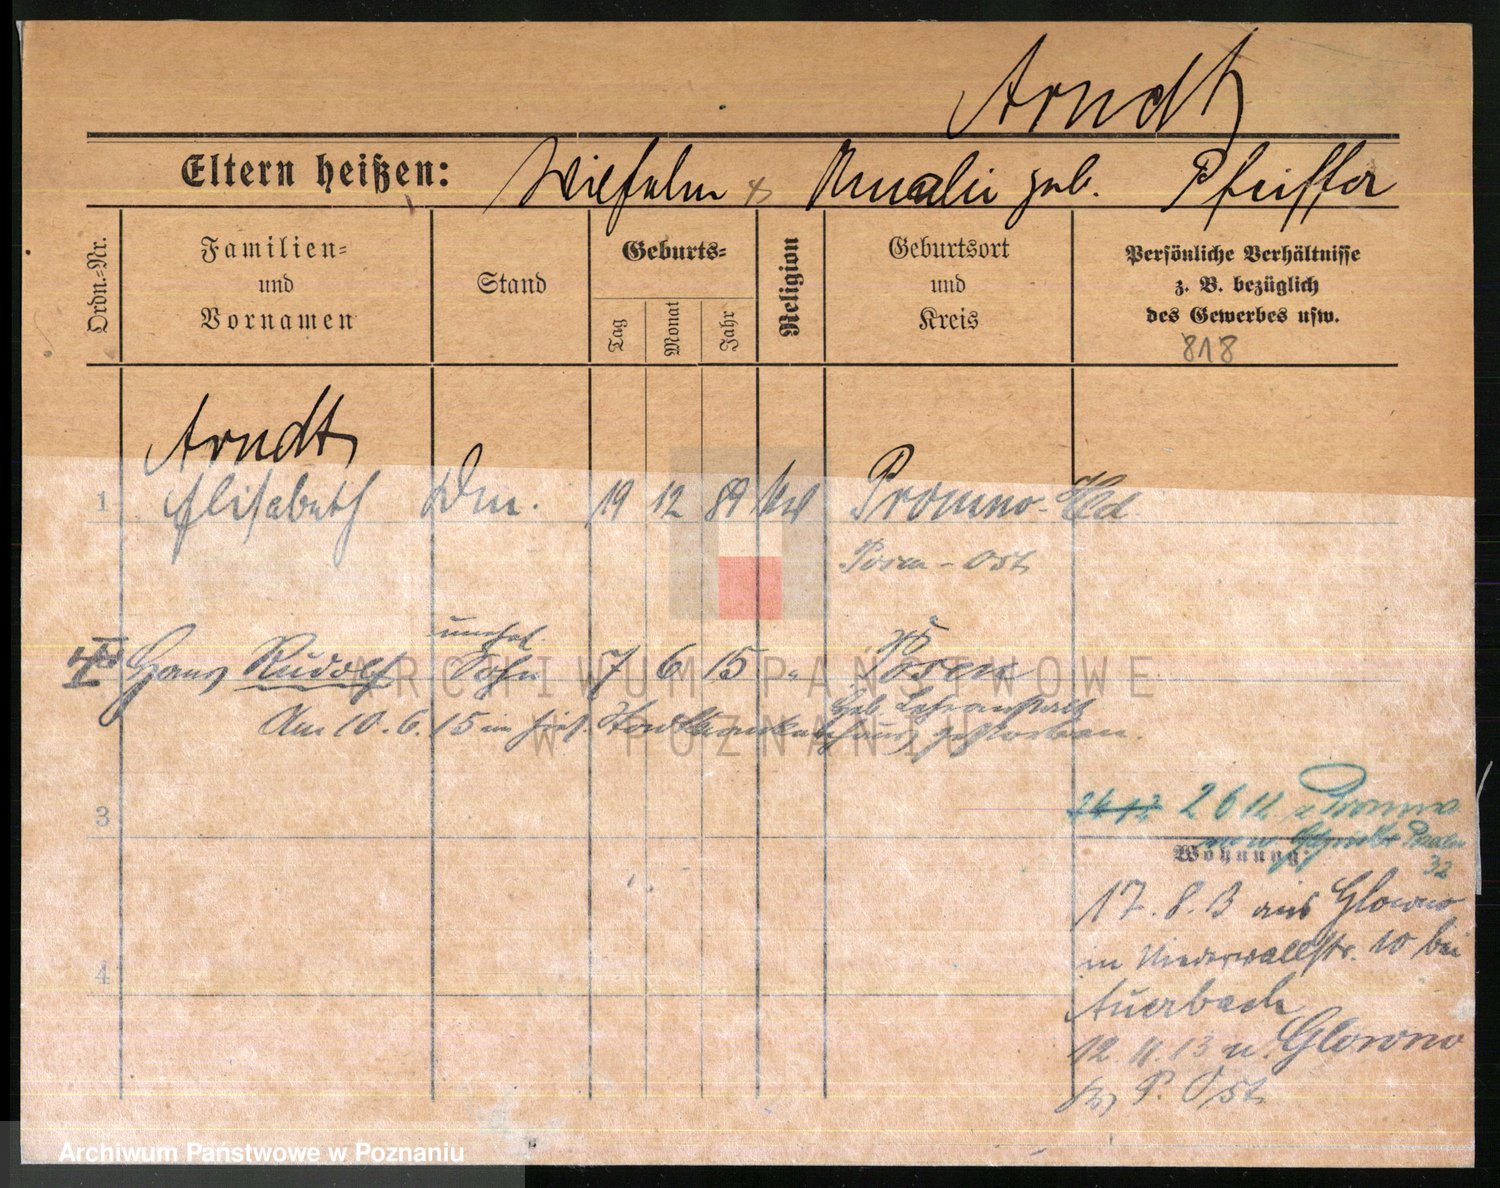 Arndt
Eltern heißen: Wilhelm & Amalie geb. Pfeiffer
Ordn.-Nr.
Familien-
und
Vornamen
Stand
Geburts-
Tag
Monat
Jahr
Religion
Geburtsort
und
Kreis
Persönliche Verhältnisse
z. B. bezüglich
des Gewerbes usw.
818
Arndt
1 Elisabeth 19 12 89 Promno
Posen-Ost
unehel.
Hans Rudolf Sohn 7 6 15 " Posen
Am 10. 6. 15 im Stadtkrankenhaus gestorben.
3
26 12 26 12 Promno
32
Wohnung:
17. 8. 13 aus Glowno
in Niederwallstr. 10 bei
Auerbach
12 11. 13 n. Glowno
P. Ost
4
ARCHIWUM PAŃSTWOWE
W POZNANIU
Archiwum Państwowe w Poznaniu